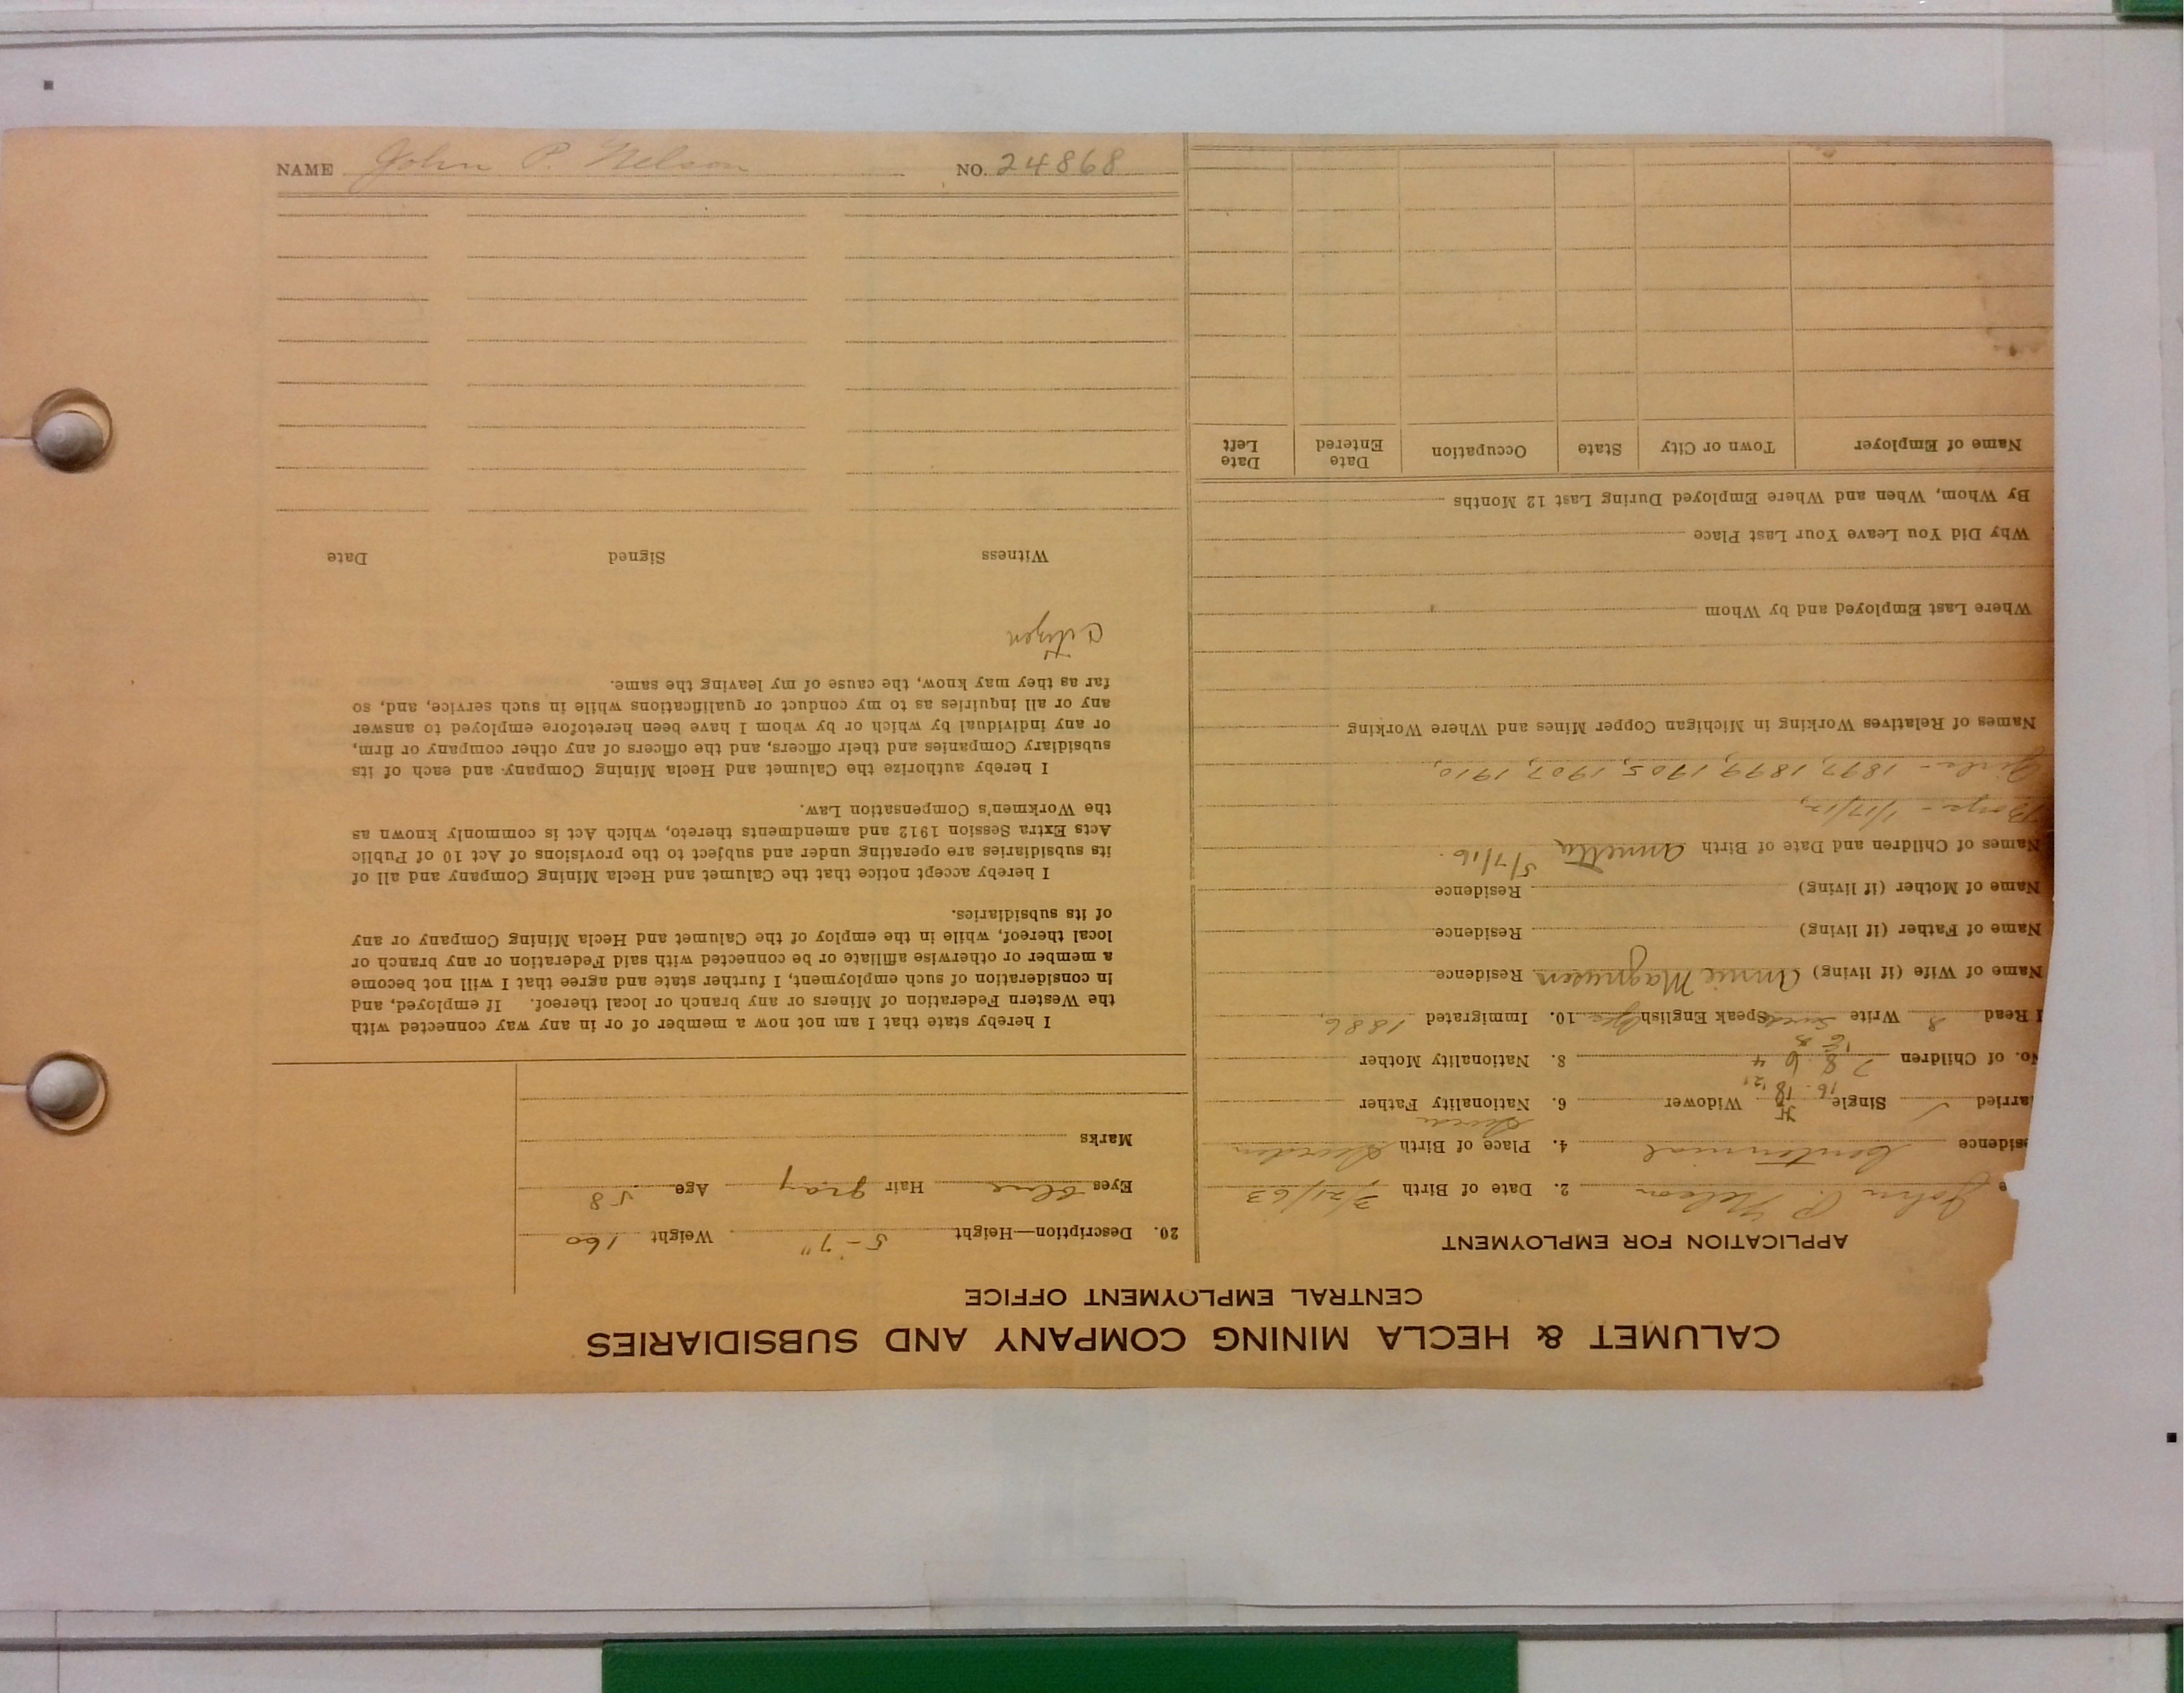 NAME John P. Nelson NO. 24868
CALUMET & HECLA MINING COMPANY AND SUBSIDIARIES
CENTRAL EMPLOYMENT OFFICE
APPLICATION FOR EMPLOYMENT
e John P. Nelson 2. Date of Birth /21/63
sidence Centennial 4. Place of Birth Sweden
arried ✓ Single Widower 6. Nationality Father
No. of Children 8. Nationality Mother
I Read S Write Swede Speak English Yes 10. Immigrated 1886
Name of Wife (if living) Annie Magnuson Residence
Name of Father (if living) Residence
Name of Mother (if living) Residence
Names of Children and Date of Birth Annetta 5/7/16.
Boys - 1/17/12,
Girls - 1897, 1899, 1905, 1907, 1910,
Names of Relatives Working in Michigan Copper Mines and Where Working
Where Last Employed and by Whom
Why Did You Leave Your Last Place
By Whom, When and Where Employed During Last 12 Months
Name of Employer Town or City State Occupation Date Entered Date Left
20. Description—Height 5-7" Weight 160
Eyes blue Hair gray Age 58
Marks
I hereby state that I am not now a member of or in any way connected with
the Western Federation of Miners or any branch or local thereof. If employed, and
in consideration of such employment, I further state and agree that I will not become
a member or otherwise affiliate or be connected with said Federation or any branch or
local thereof, while in the employ of the Calumet and Hecla Mining Company or any
of its subsidiaries.
I hereby accept notice that the Calumet and Hecla Mining Company and all of
its subsidiaries are operating under and subject to the provisions of Act 10 of Public
Acts Extra Session 1912 and amendments thereto, which Act is commonly known as
the Workmen's Compensation Law.
I hereby authorize the Calumet and Hecla Mining Company and each of its
subsidiary Companies and their officers, and the officers of any other company or firm,
or any individual by which or by whom I have been heretofore employed to answer
any or all inquiries as to my conduct or qualifications while in such service, and, so
far as they may know, the cause of my leaving the same.
Citizen
Witness Signed Date